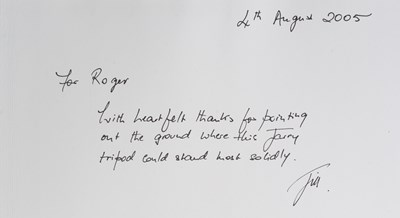 4th August 2005
For Roger
With heartfelt thanks for pointing
out the ground where this Jainy
tripod could stand most solidly.
Jill.